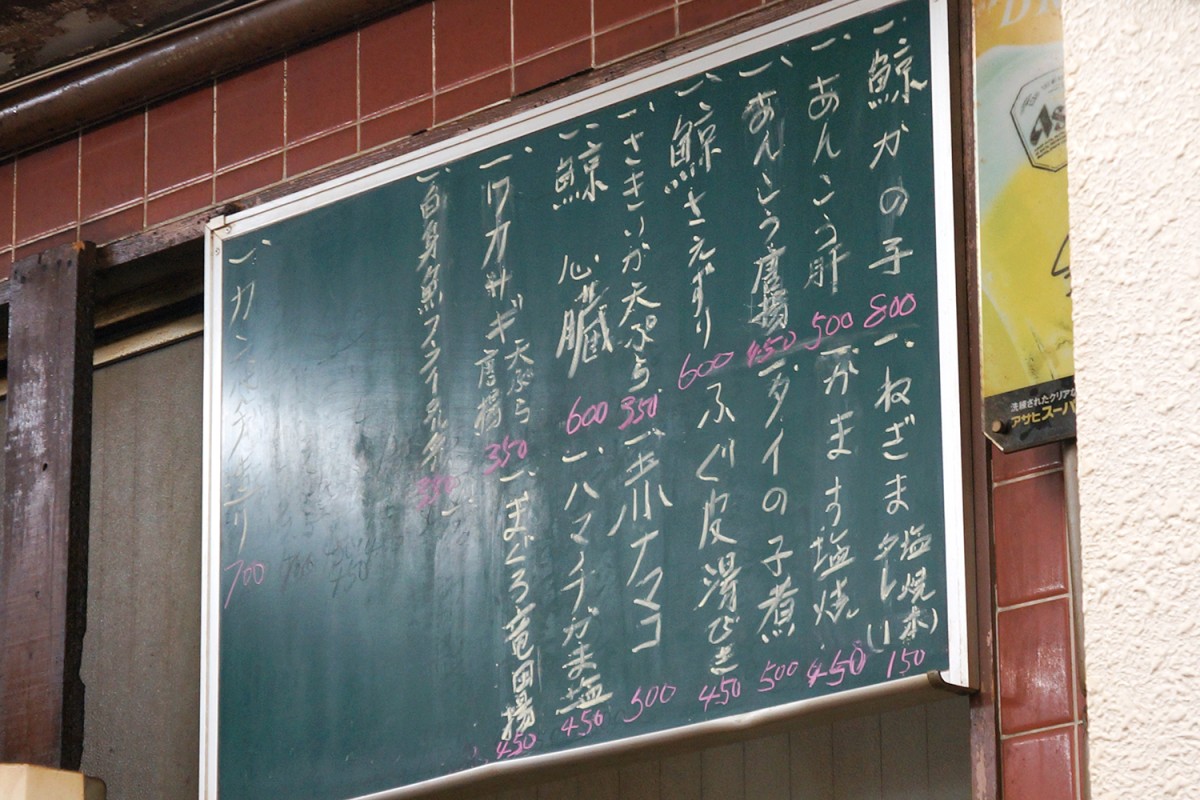 一、鯨かの子 800
一、ねぎま 塩焼 タレ(1本) 150
一、あんこう肝 500
一、かます塩焼 450
一、あんこう唐揚 450
一、タイの子煮 500
一、鯨さえずり 600
ふぐ皮湯びき 450
一、さきいか天ぷら 350
一、赤ナマコ 500
一、鯨 心臓 600
一、ハマチがま塩 450
一、ワカサギ 天ぷら 唐揚 350
一、まぐろ竜田揚 450
一、白身魚フライ 350
一、
一、カン 700
As
洗練されたクリアな
アサヒスーパ